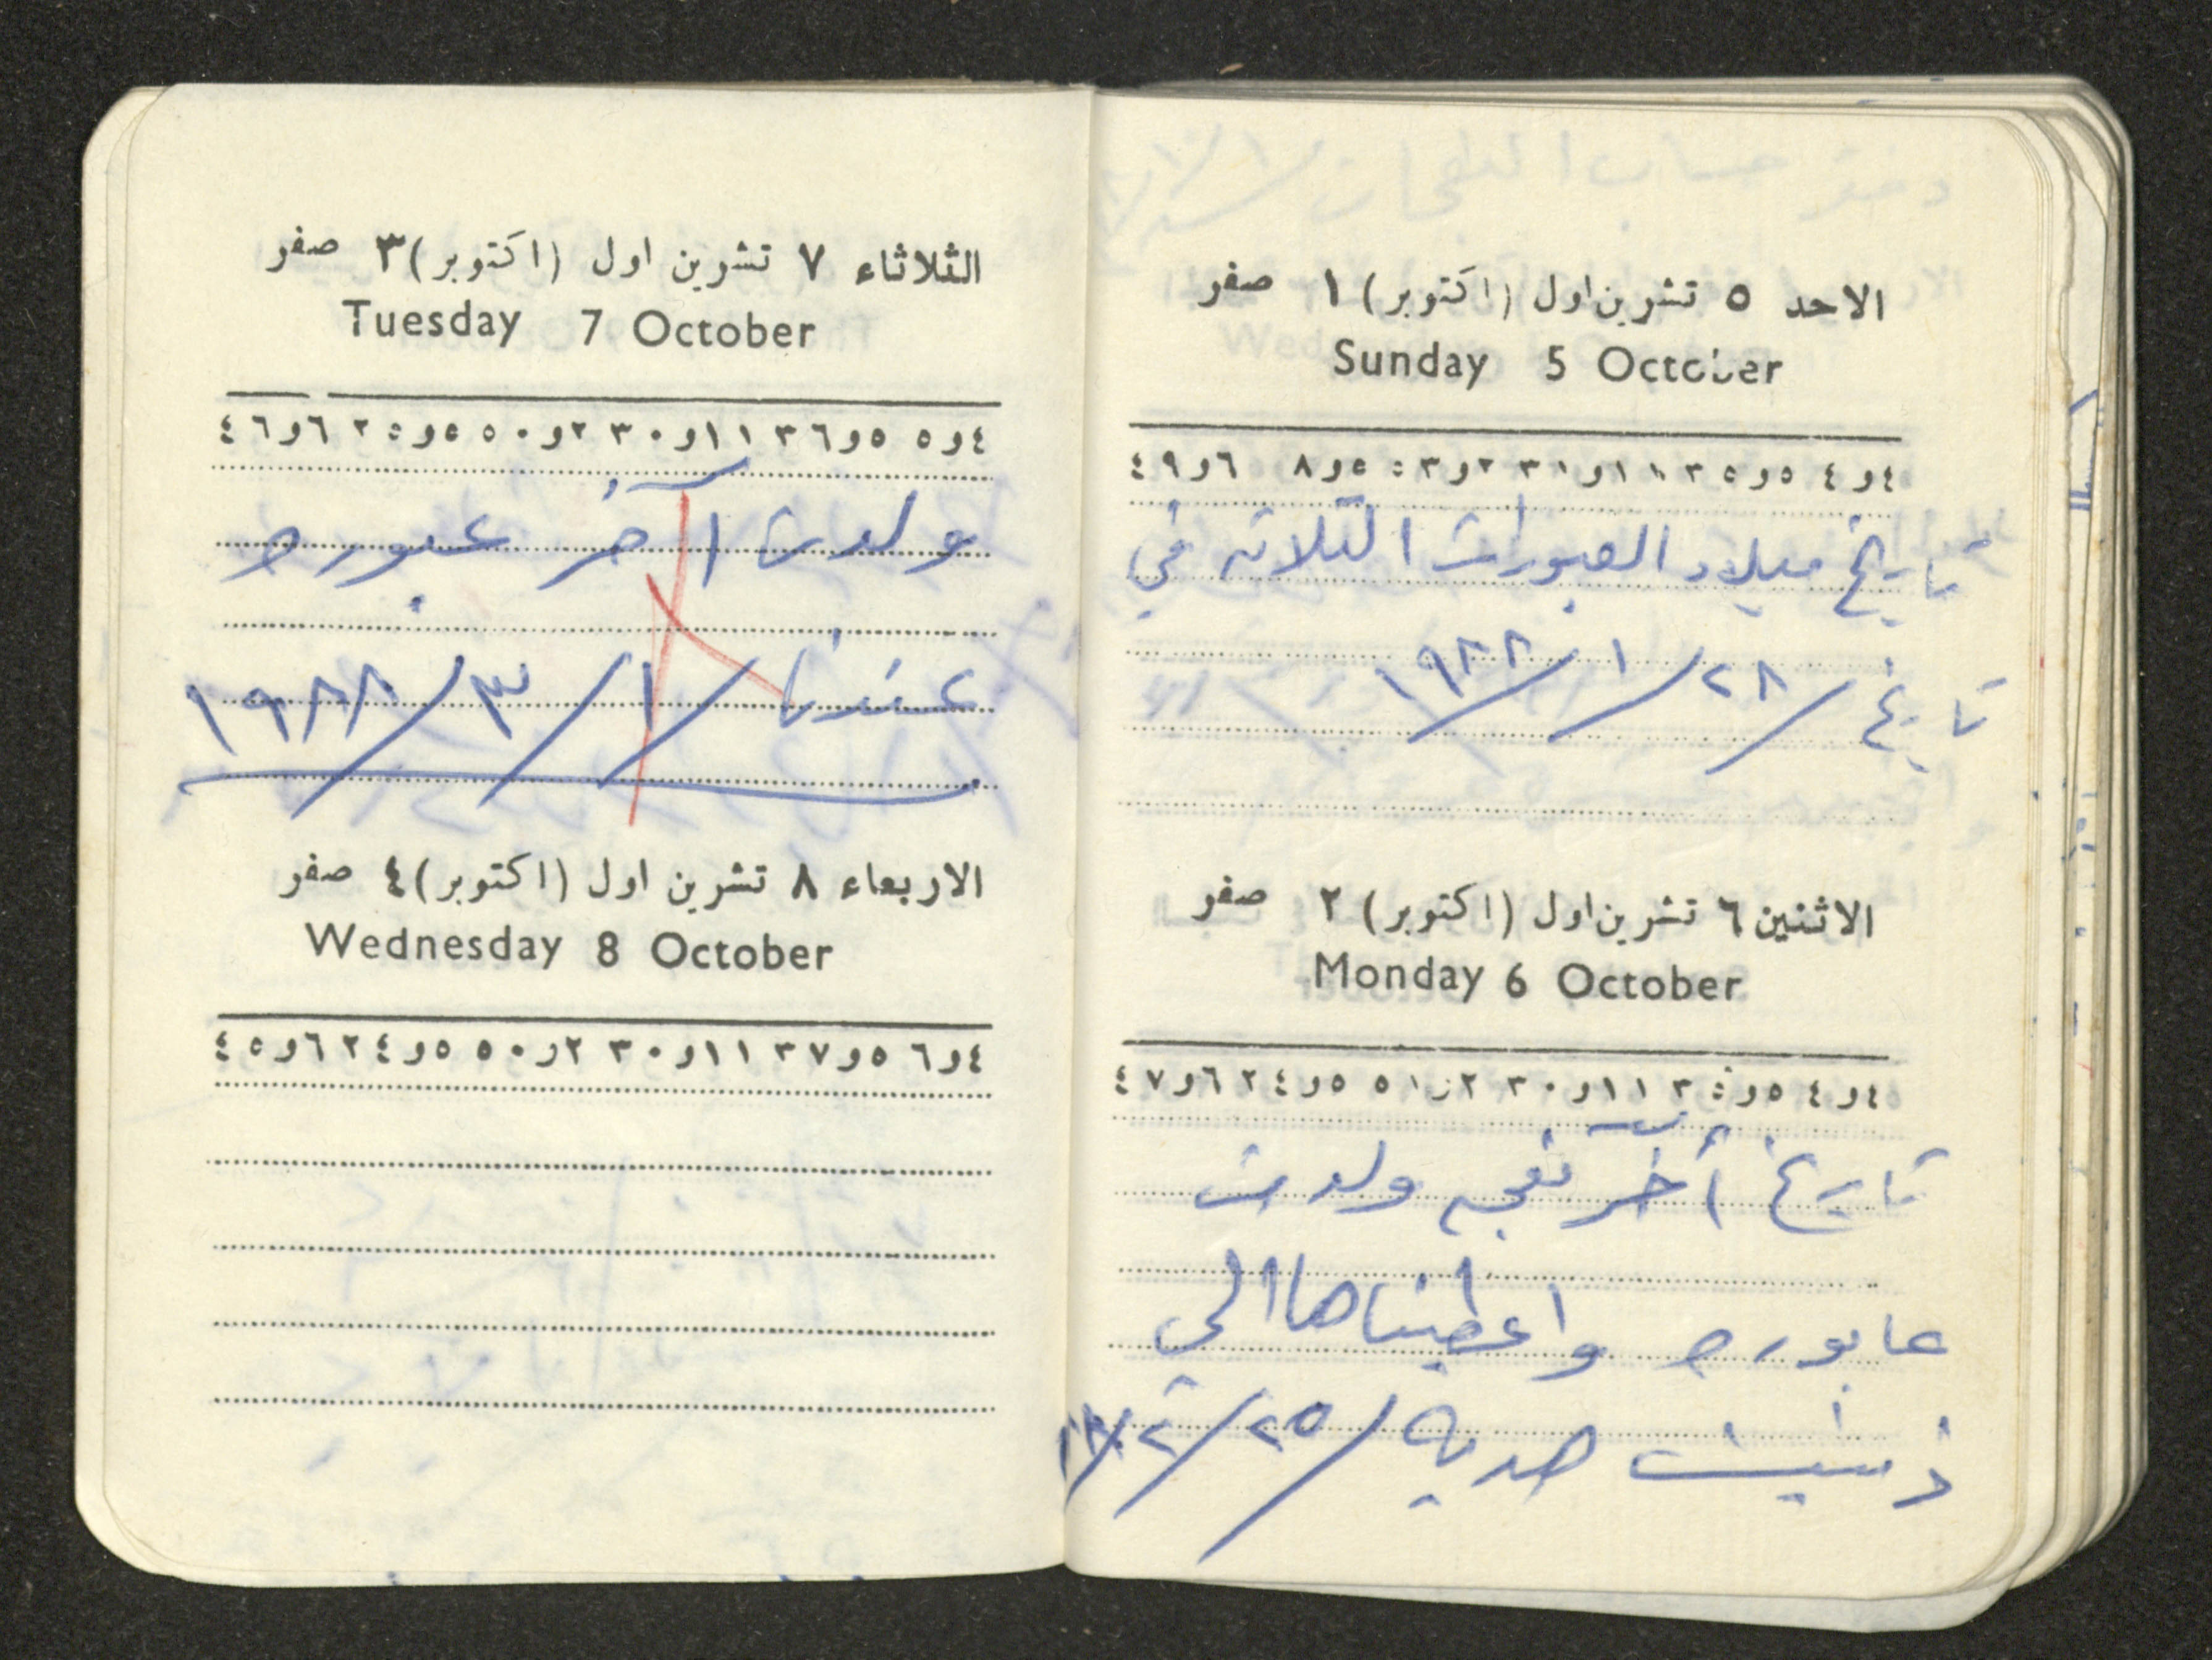 الاحد ٥ تشرين اول (اكتوبر) ١ صفر
Sunday 5 October
٤و٤ ٥و٣٥ ١١و٣١ ٢و٥٣ ٥و٨ ٦و٤٩
تاريخ ميلاد العبورات الثلاثه في
تاريخ ٢٨/١/١٩٨٨
الاثنين ٦ تشرين اول (اكتوبر) ٢ صفر
Monday 6 October
٤و٤ ٥و٣٥ ١١و٣٠ ٢و٥١ ٥و٢٤ ٦و٤٧
تاريخ آخر نعجه ولدت
عابوره واعطيناها الى
هديه ٢٥/٢/
الثلاثاء ٧ تشرين اول (اكتوبر) ٣ صفر
Tuesday 7 October
٤و٥ ٥و٣٦ ١١و٣٠ ٢و٥٠ ٥و٢٥ ٦و٤٦
ولدت آخر عبوره
عندنا ١/٣/١٩٨٨
الاربعاء ٨ تشرين اول (اكتوبر) ٤ صفر
Wednesday 8 October
٤و٦ ٥و٣٧ ١١و٣٠ ٢و٥٠ ٥و٢٤ ٦و٤٥